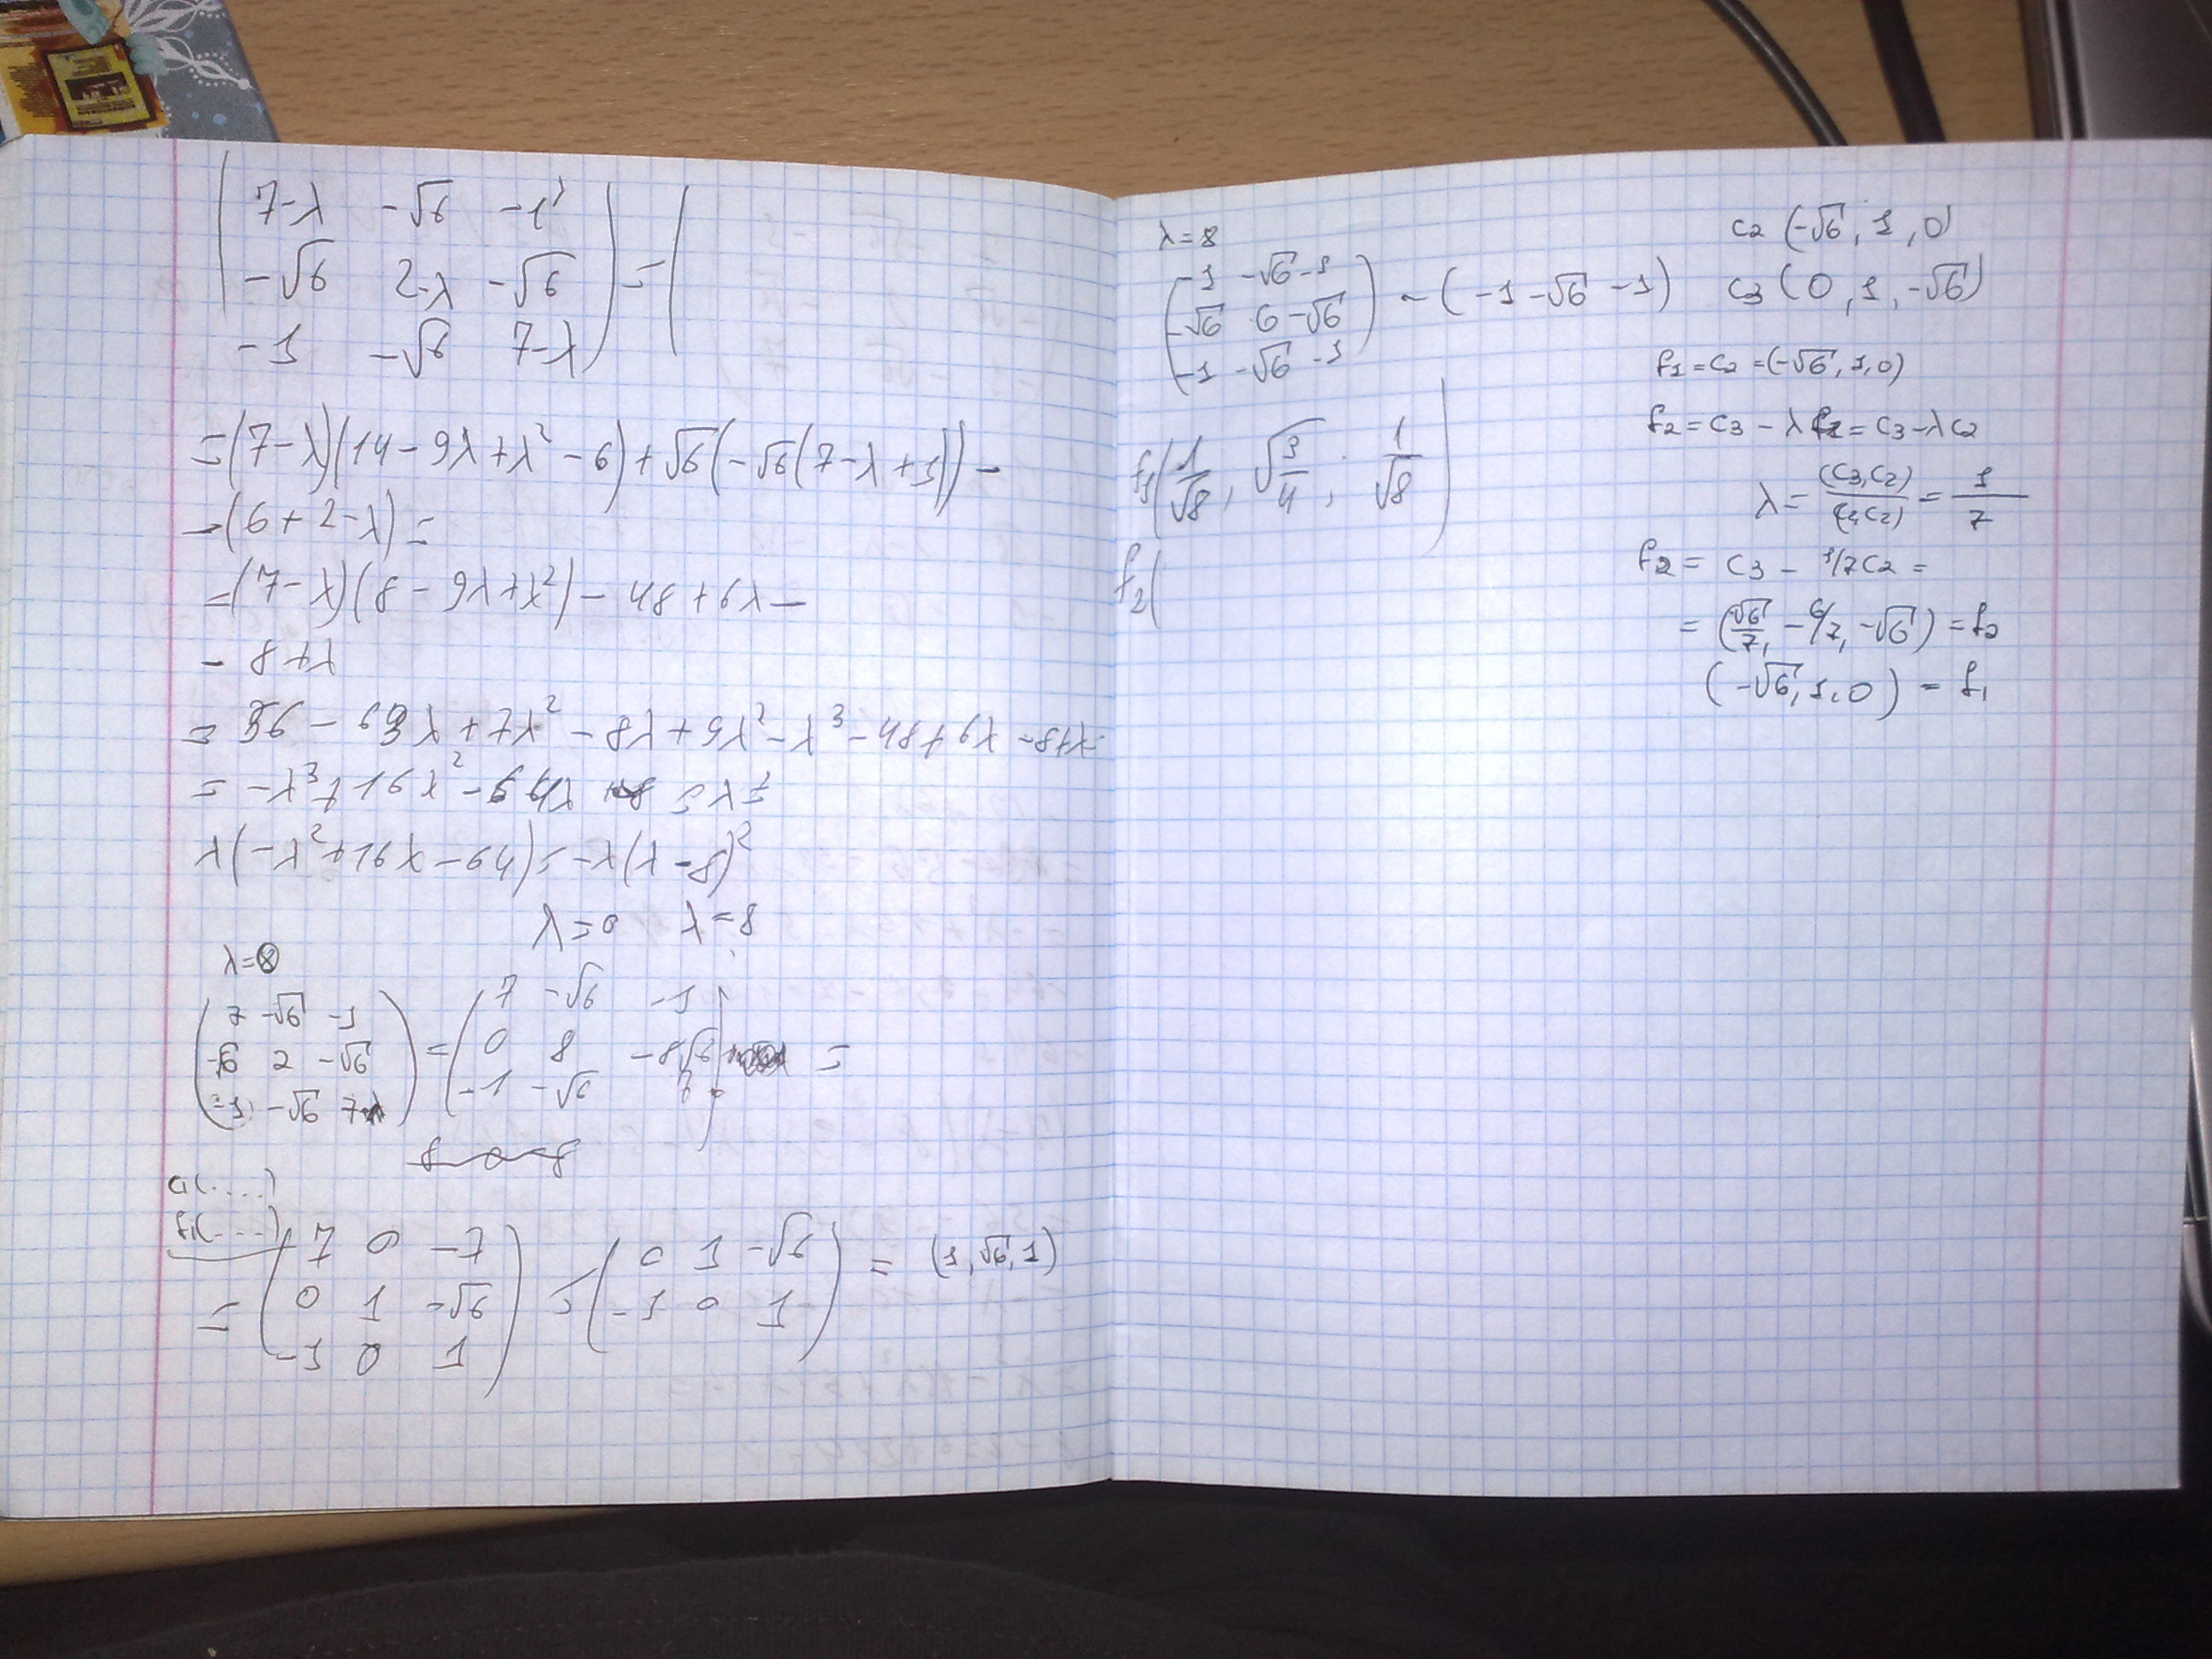 7-λ -√6 -1
-√6 2-λ -√6 =
-1 -√6 7-λ
=(7-λ)(14-9λ+λ²-6)+√6(-√6(7-λ+1))-
-(6+2-λ)=
=(7-λ)(8-9λ+λ²)-48+6λ-
-8+λ
= 56-63λ+7λ²-8λ+9λ²-λ³-48+6λ-8+λ=
= -λ³+16λ²-64λ
λ(-λ²+16λ-64)=-λ(λ-8)²
λ=0 λ=8
λ=0
(7 -√6 -1) (7 -√6 -1)
(-√6 2 -√6) = (0 8 -8√6) =
(-1 -√6 7) (-1 -√6
8 0 -8
c1(....)
f1(....)
(7 0 -7) (0 1 -√6)
= (0 1 -√6) = (-1 0 1) = (1, √6, 1)
(-1 0 1)
λ=8
(-1 -√6 -1)
(-√6 6 -√6) ~ (-1 -√6 -1)
(-1 -√6 -1)
f3(1/√8, √3/4, 1/√8)
f2(
c2 (-√6, 1, 0)
c3 (0, 1, -√6)
f1 = c2 = (-√6, 1, 0)
f2 = c3 - λ f1 = c3 - λc2
λ = (c3,c2)/(c2,c2) = 1/7
f2 = c3 - 1/7c2 =
= (√6/7, -6/7, -√6) = f2
(-√6, 1, 0) = f1